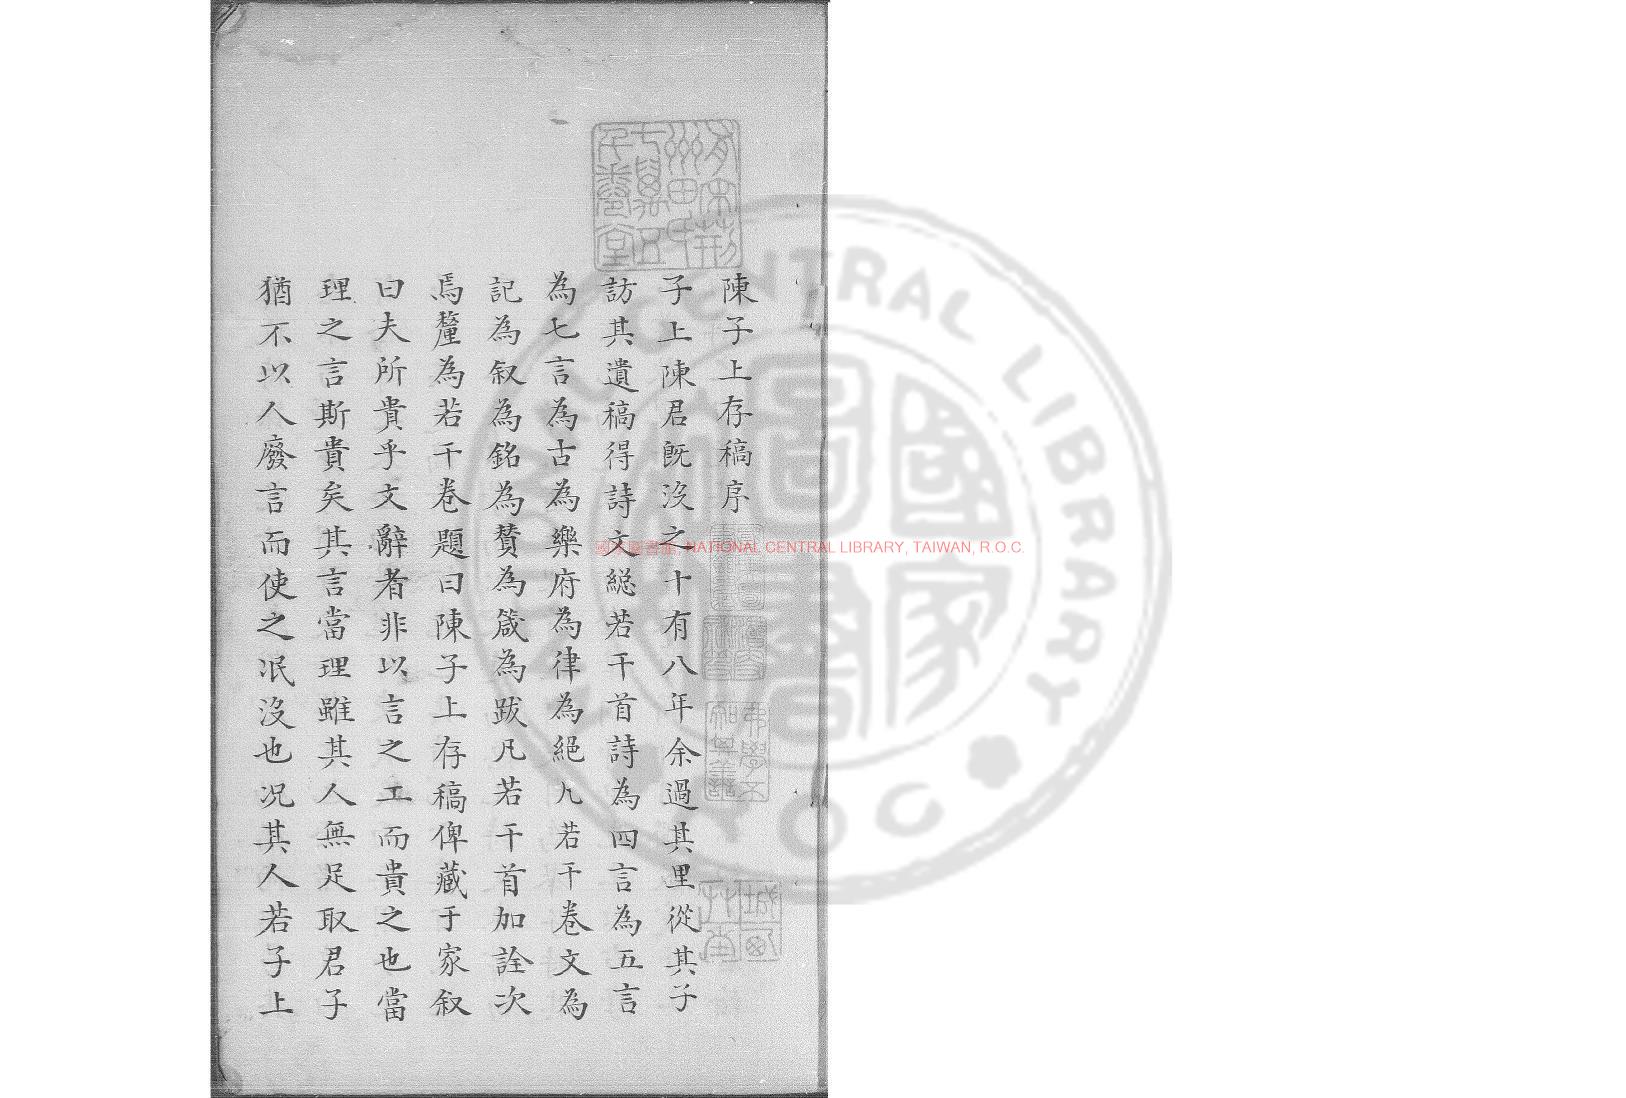 陳子上存稿序
子上陳君旣沒之十有八年余過其里從其子
訪其遺稿得詩文總若干首詩為四言為五言
為七言為古為樂府為律為絕凡若干卷文為
記為叙為銘為贊為箴為跋凡若干首加詮次
焉釐為若干卷題曰陳子上存稿俾藏于家叙
曰夫所貴乎文辭者非以言之工而貴之也當
理之言斯貴矣其言當理雖其人無足取君子
猶不以人廢言而使之泯沒也况其人若子上
國家圖書館, NATIONAL CENTRAL LIBRARY, TAIWAN, R.O.C.